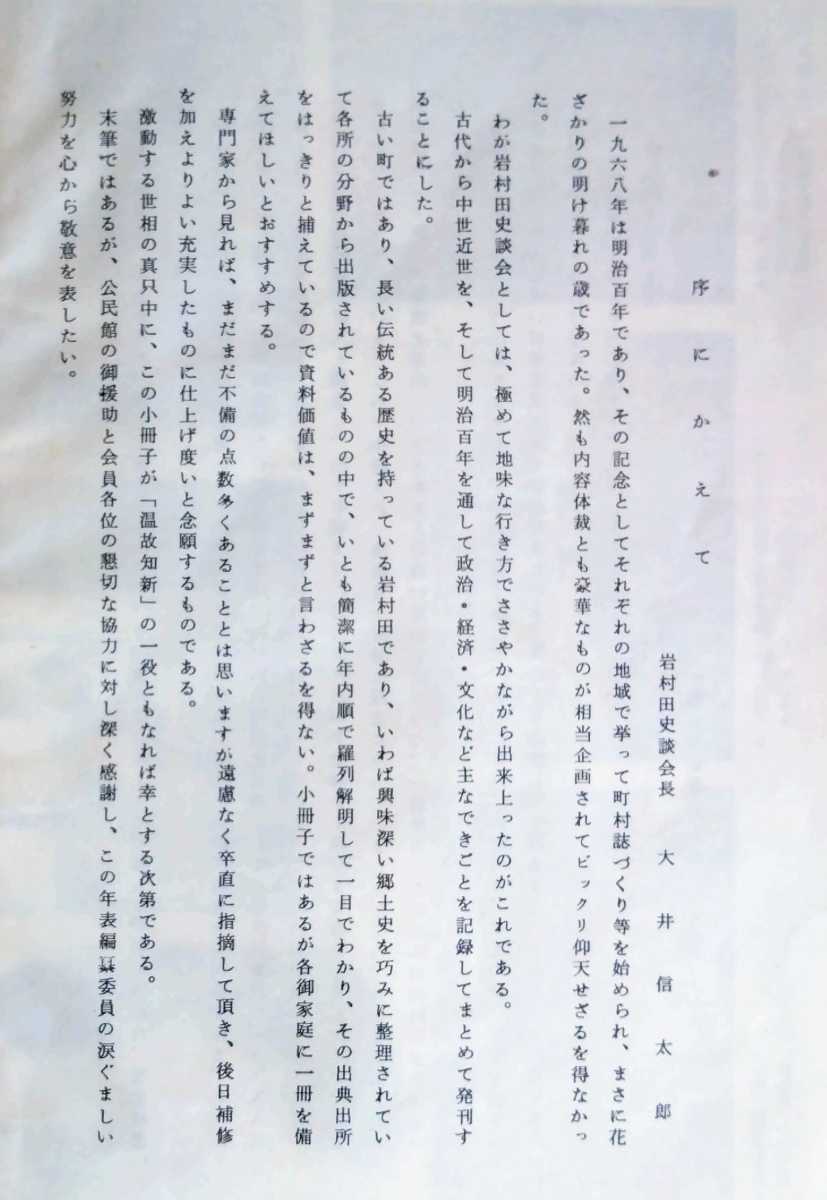 序にかえて
岩村田史談会長　大井信太郎
一九六八年は明治百年であり、その記念としてそれぞれの地域で挙って町村誌づくり等を始められ、まさに花
ざかりの明け暮れの歳であった。然も内容体裁とも豪華なものが相当企画されてビックリ仰天せざるを得なかっ
た。
わが岩村田史談会としては、極めて地味な行き方でささやかながら出来上ったのがこれである。
古代から中世近世を、そして明治百年を通して政治・経済・文化など主なできごとを記録してまとめて発刊す
ることにした。
古い町ではあり、長い伝統ある歴史を持っている岩村田であり、いわば興味深い郷土史を巧みに整理されてい
て各所の分野から出版されているものの中で、いとも簡潔に年内順で羅列解明して一目でわかり、その出典出所
をはっきりと捕えているので資料価値は、まずまずと言わざるを得ない。小冊子ではあるが各御家庭に一冊を備
えてほしいとおすすめする。
専門家から見れば、まだまだ不備の点数多くあることとは思いますが遠慮なく卒直に指摘して頂き、後日補修
を加えよりよい充実したものに仕上げ度いと念願するものである。
激動する世相の真只中に、この小冊子が「温故知新」の一役ともなれば幸とする次第である。
末筆ではあるが、公民館の御援助と会員各位の懇切な協力に対し深く感謝し、この年表編纂委員の涙ぐましい
努力を心から敬意を表したい。